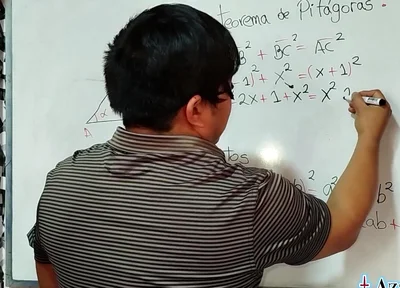 teorema de Pitágoras.
B² + BC² = AC²
1)² + x² = (x + 1)²
2x + 1 + x² = x² 2
A α
tos
b² = a² b²
2ab +
+ Az